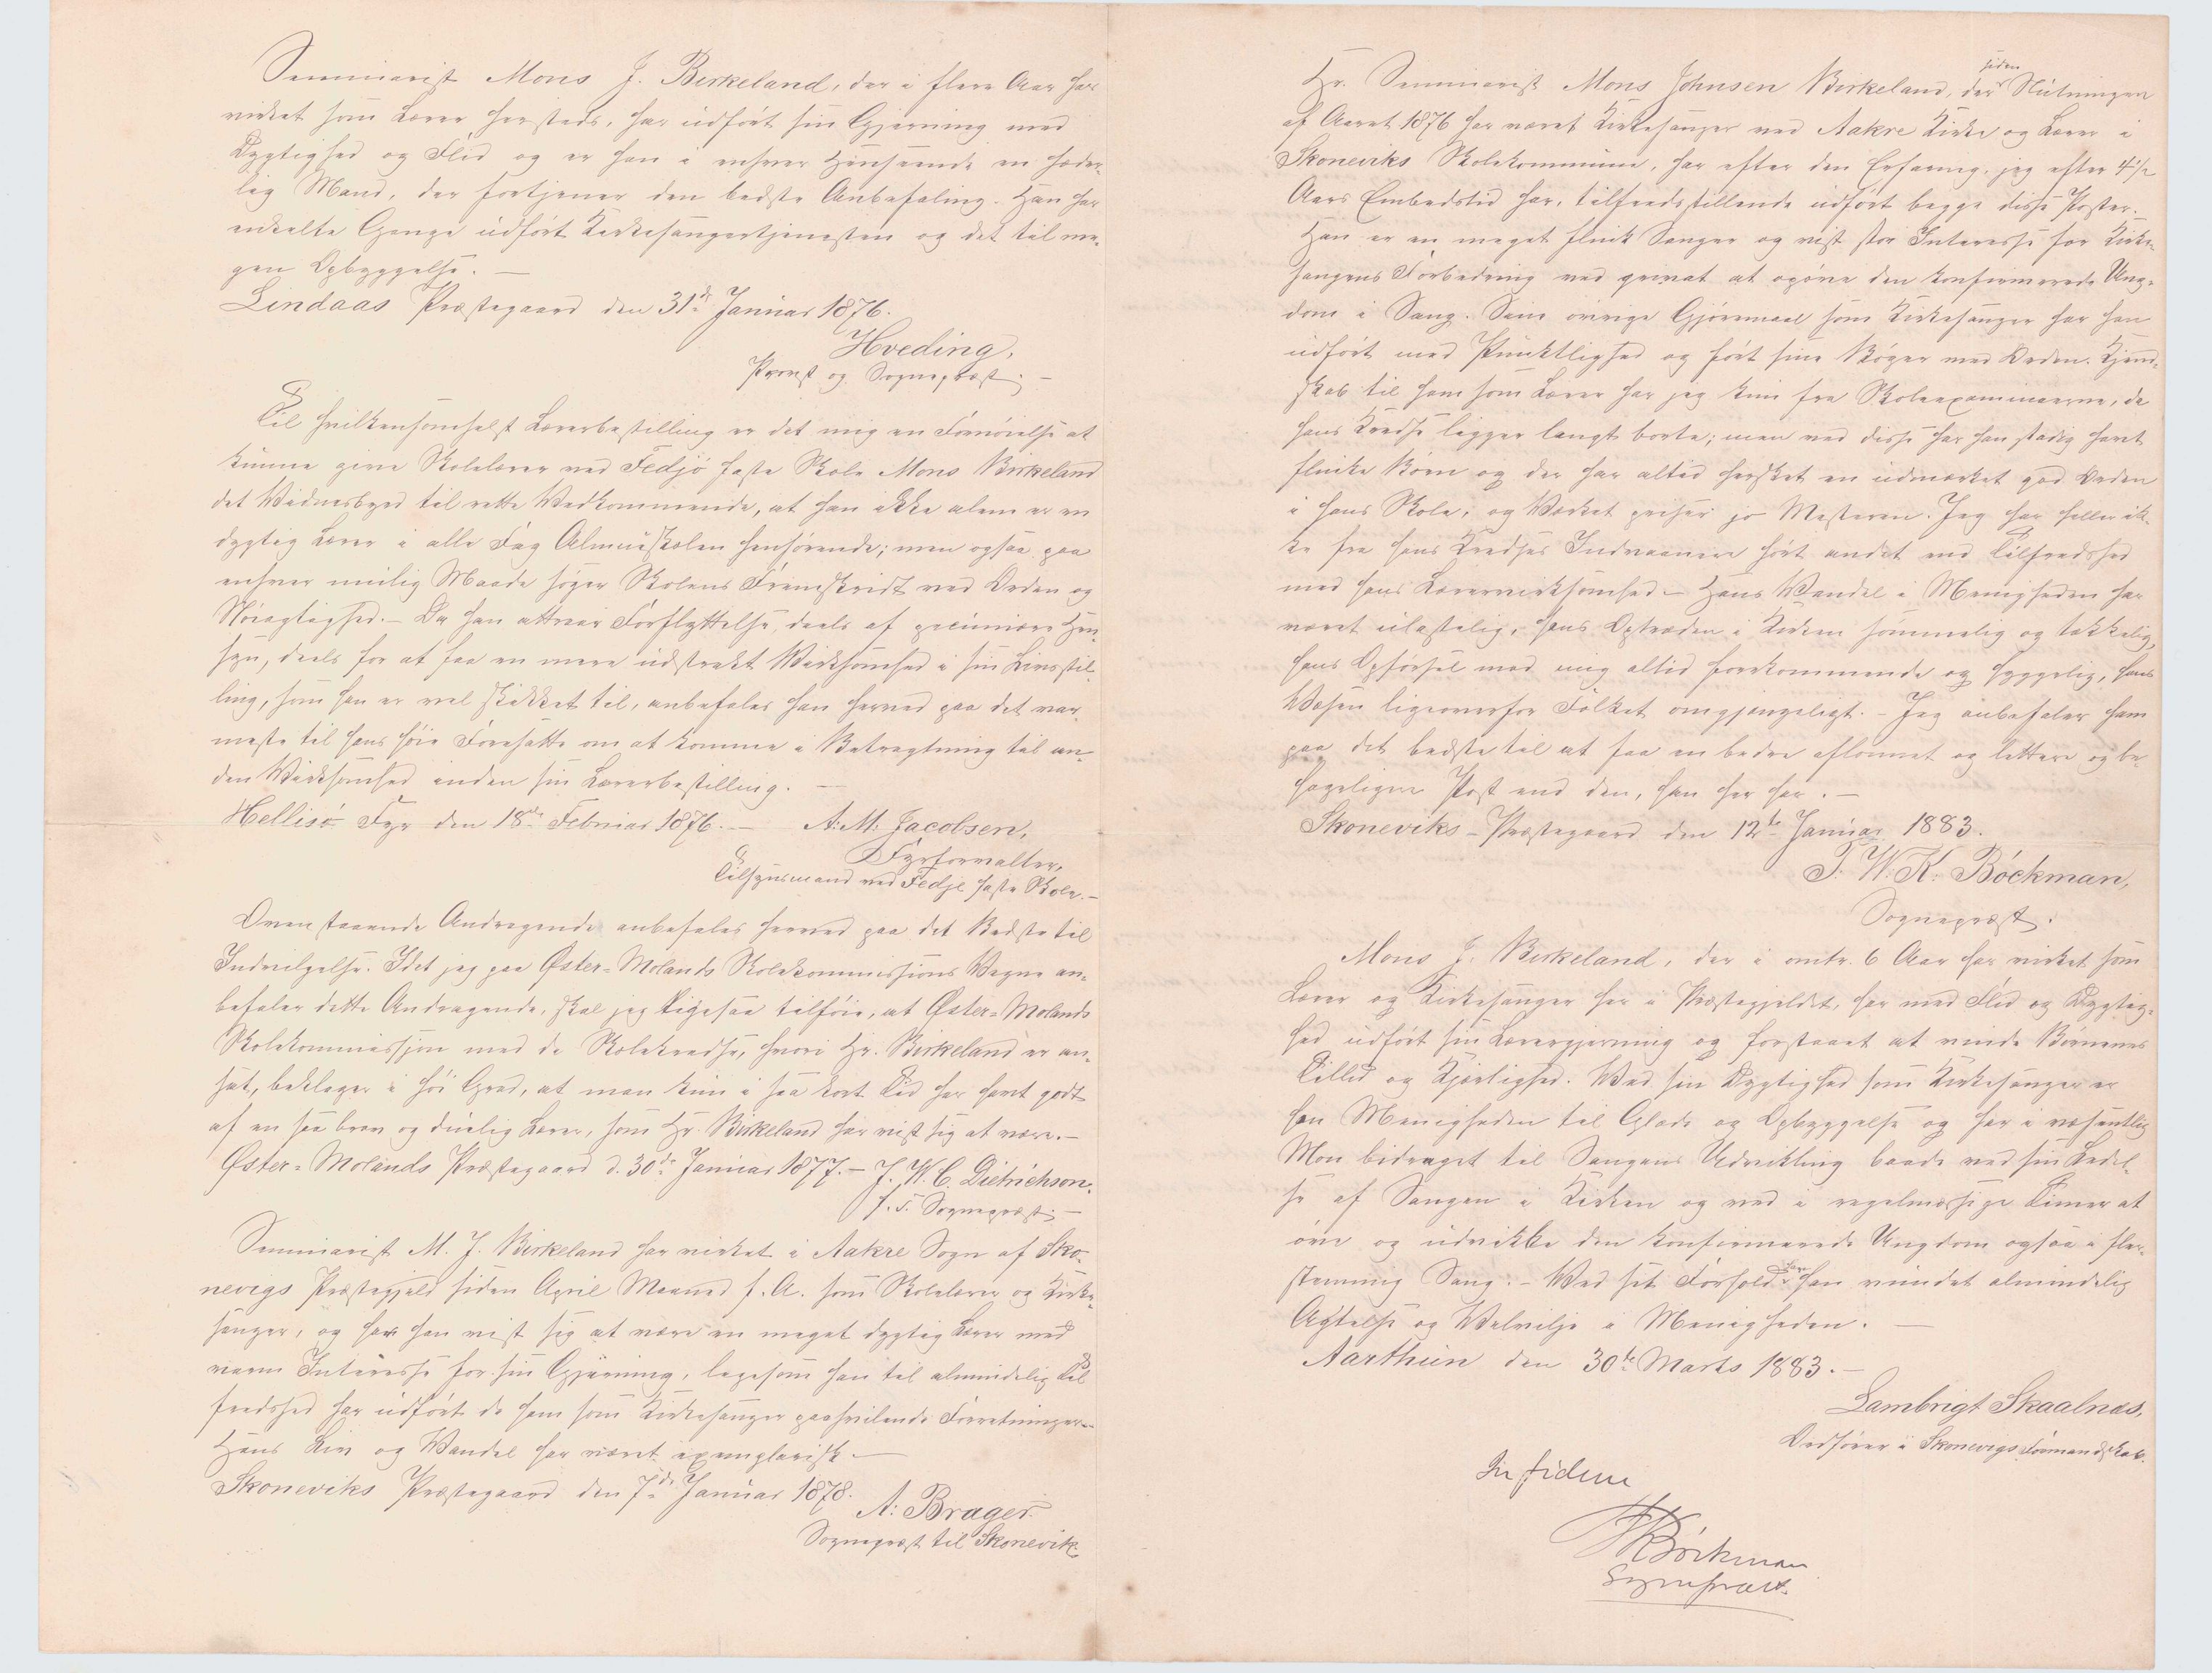 Seminarist Mons J. Birkeland, der i flere Aar har
virket som Lærer hersteds, har udført sin Gjerning med
Dygtighed og Flid og er han i enhver Henseende en hæder-
lig Mand, der fortjener den bedste Anbefaling. Han har
enkelte Gange udført Kirkesangertjenesten og det til me-
gen Opbyggelse. —
Lindaas Præstegaard den 31de Januar 1876.
Hveding,
Provst og Sognepræst. —
Til hvilkensomhelst Lærerbestilling er det mig en Fornøielse at
kunne give Skolelærer ved Fedjø faste Skole Mons Birkeland
det Vidnesbyrd til rette Vedkommende, at han ikke alene er en
dygtig Lærer i alle Fag Almueskolen henhørende; men ogsaa paa
enhver mulig Maade søger Skolens Fremskridt ved Orden og
Nøiagtighed. — Da han attraar Forflyttelse, deels af pecuniære Hen-
syn, deels for at faa en mere udstrakt Virksomhed i sin Livsstil-
ling, som han er vel skikket til, anbefales han herved paa det var-
meste til hans høie Foresatte om at komme i Betragtning til an-
den Virksomhed inden sin Lærerbestilling. —
Hellisø Fyr den 18de Februar 1876. — A. M. Jacobsen,
Fyrforvalter,
Tilsynsmand ved Fedje faste Skole. —
Ovenstaaende Andragende anbefales herved paa det Bedste til
Indvilgelse. Idet jeg paa Øster-Molands Skolekommissions Vegne an-
befaler dette Andragende, skal jeg ligesaa tilføie, at Øster-Molands
Skolekommission med de Skolekredse, hvori Hr. Birkeland er an-
sat, beklager i høi Grad, at man kun i saa kort Tid har havt godt
af en saa brav og duelig Lærer, som Hr. Birkeland har vist sig at være. —
Øster-Molands Præstegaard d. 30de Januar 1877. — J. W. C. Dietrichson.
f. T. Sognepræst. —
Seminarist M. J. Birkeland har virket i Aakre Sogn af Sko-
nevigs Præstegjeld siden April Maaned f. A. som Skolelærer og Kirke-
sanger, og har han vist sig at være en meget dygtig Lærer med
varm Interesse for sin Gjerning, ligesom han til almindelig Til-
fredshed har udført de ham som Kirkesanger paahvilende Forretninger. —
Hans Liv og Vandel har været exemplarisk. —
Skoneviks Præstegaard den 7de Januar 1878.
A. Brager
Sognepræst til Skonevik.
Hr. Seminarist Mons Johnsen Birkeland, der siden Slutningen
af Aaret 1876 har været Kirkesanger ved Aakre Kirke og Lærer i
Skoneviks Skolekommune, har efter den Erfaring, jeg efter 4 1/2
Aars Embedstid har, tilfredsstillende udført begge disse Poster. —
Han er en meget flink Sanger og vist stor Interesse for Kirke-
sangens Forbedring ved privat at opøve den konfirmerede Ung-
dom i Sang. Sine øvrige Gjøremaal som Kirkesanger har han
udført med Punktlighed og ført sine Bøger med Orden. Kjend-
skab til ham som Lærer har jeg kun fra Skoleexaminerne, da
hans Kredse ligger langt borte; men ved disse har han stadig havt
flinke Børn og der har altid hersket en udmærket god Orden
i hans Skole, og Værket priser jo Mesteren. Jeg har heller ik-
ke fra hans Kredses Indvaanere hørt andet end Tilfredshed
med hans Lærervirksomhed. — Hans Vandel i Menigheden har
været ulastelig, hans Optræden i Kirken sømmelig og tækkelig,
hans Opførsel mod mig altid forekommende og hyggelig, hans
Væsen ligeoverfor Folket omgjængeligt. — Jeg anbefaler ham
paa det bedste til at faa en bedre aflønnet og lettere og be-
hageligere Post end den, han her har. —
Skoneviks-Præstegaard den 12te Januar 1883.
T. W. K. Bøckman,
Sognepræst.
Mons J. Birkeland, der i omtr. 6 Aar har virket som
Lærer og Kirkesanger her i Præstegjeldet, har med Flid og Dygtig-
hed udført sin Lærergjerning og forstaaet at vinde Børnenes
Tillid og Kjærlighed. Ved sin Dygtighed som Kirkesanger er
han Menigheden til Glæde og Opbyggelse og har i væsentlig
Mon bidraget til Sangens Udvikling baade ved sin Ledel-
se af Sangen i Kirken og ved i regelmæssige Timer at
øve og udvikle den konfirmerede Ungdom ogsaa i fler-
stemmig Sang. — Ved sit Forhold har han vundet almindelig
Agtelse og Velvilje i Menigheden. —
Aarthun den 30te Marts 1883. —
Lambrigt Skaalnæs,
Ordfører i Skonevigs Formandskab.
In fidem
Bøckman
Sognepræst.